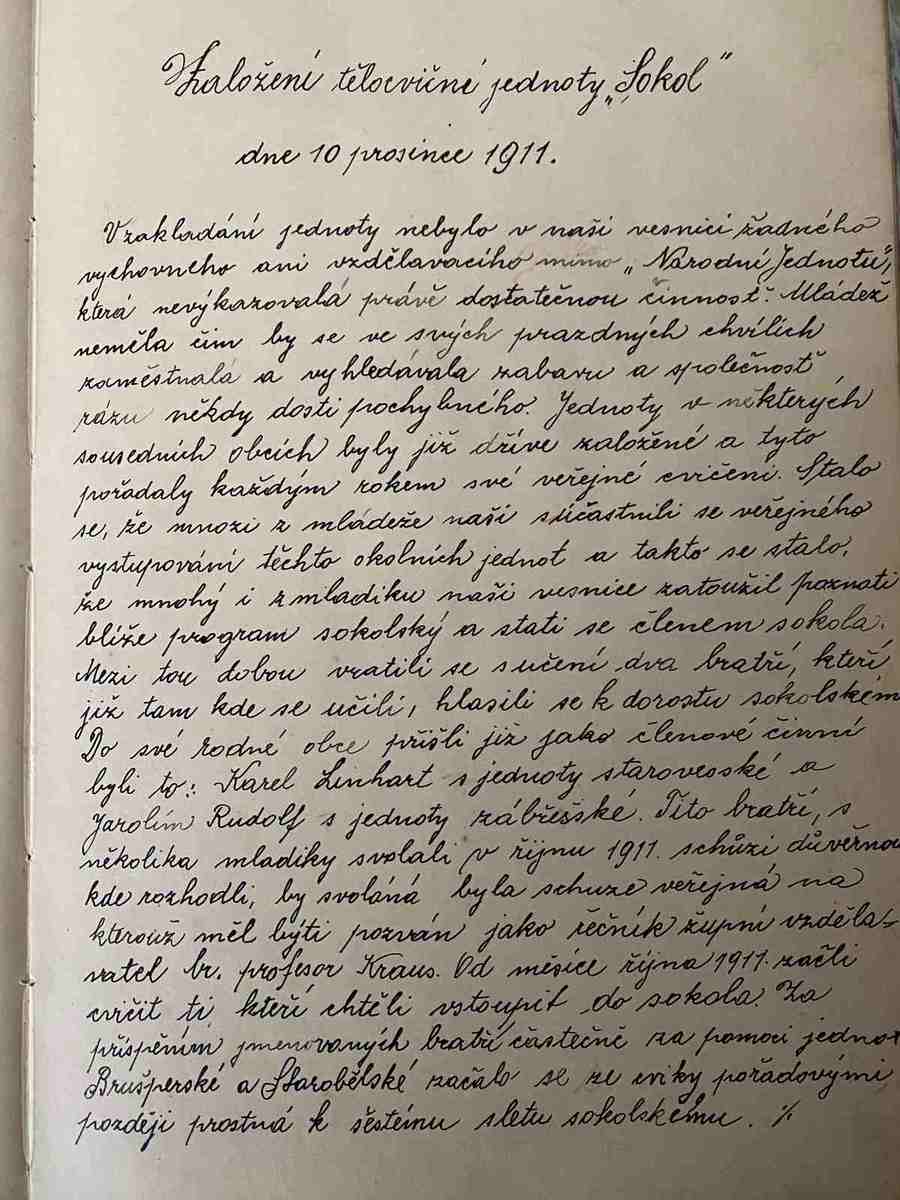 Založení tělocvičné jednoty „Sokol"
dne 10 prosince 1911.
V zakládání jednoty nebylo v naší vesnici žádného
vychovneho ani vzdělavacího mimo „Národní Jednotu",
která nevýkazovalá právě dostatečnou činnost. Mládež
neměla čim by se ve svých prazdných chvílích
zaměstnalá a vyhledávala zabavu a společnost
rázu někdy dosti pochybného. Jednoty v některých
sousedních obcích byly již dříve založené a tyto
pořadaly každým rokem své veřejné cvičeni. Stalo
se, že mnozi z mládeže naší súčastnili se veřejného
vystupování těchto okolních jednot a takto se stalo,
že mnohý i z mladiku naši vesnice zatoužil poznati
blíže program sokolský a stati se členem sokola.
Mezi tou dobou vratili se s učení dva bratří, kteří
již tam kde se učilí, hlasili se k dorostu sokolském
Do své rodné obce přišli již jako členové činní
byli to: Karel Linhart s jednoty starovesské a
Jarolím Rudolf s jednoty zábřešské. Tito bratří, s
několika mladiky svolali v říjnu 1911. schůzi důvěrnou
kde rozhodli, by svoláná byla schuze veřejná na
kterouž měl býti pozván jako řečník župní vzděla-
vatel br. profesor Kraus. Od měsíce října 1911. začli
cvičit ti, kteří chtěli vstoupit do sokola. Za
přispěním jmenovaných bratří částečně za pomoci jednot
Brušperské a Starobělské začalo se ze cviky pořadovými,
později prostná k šestému sletu sokolskému. ./.